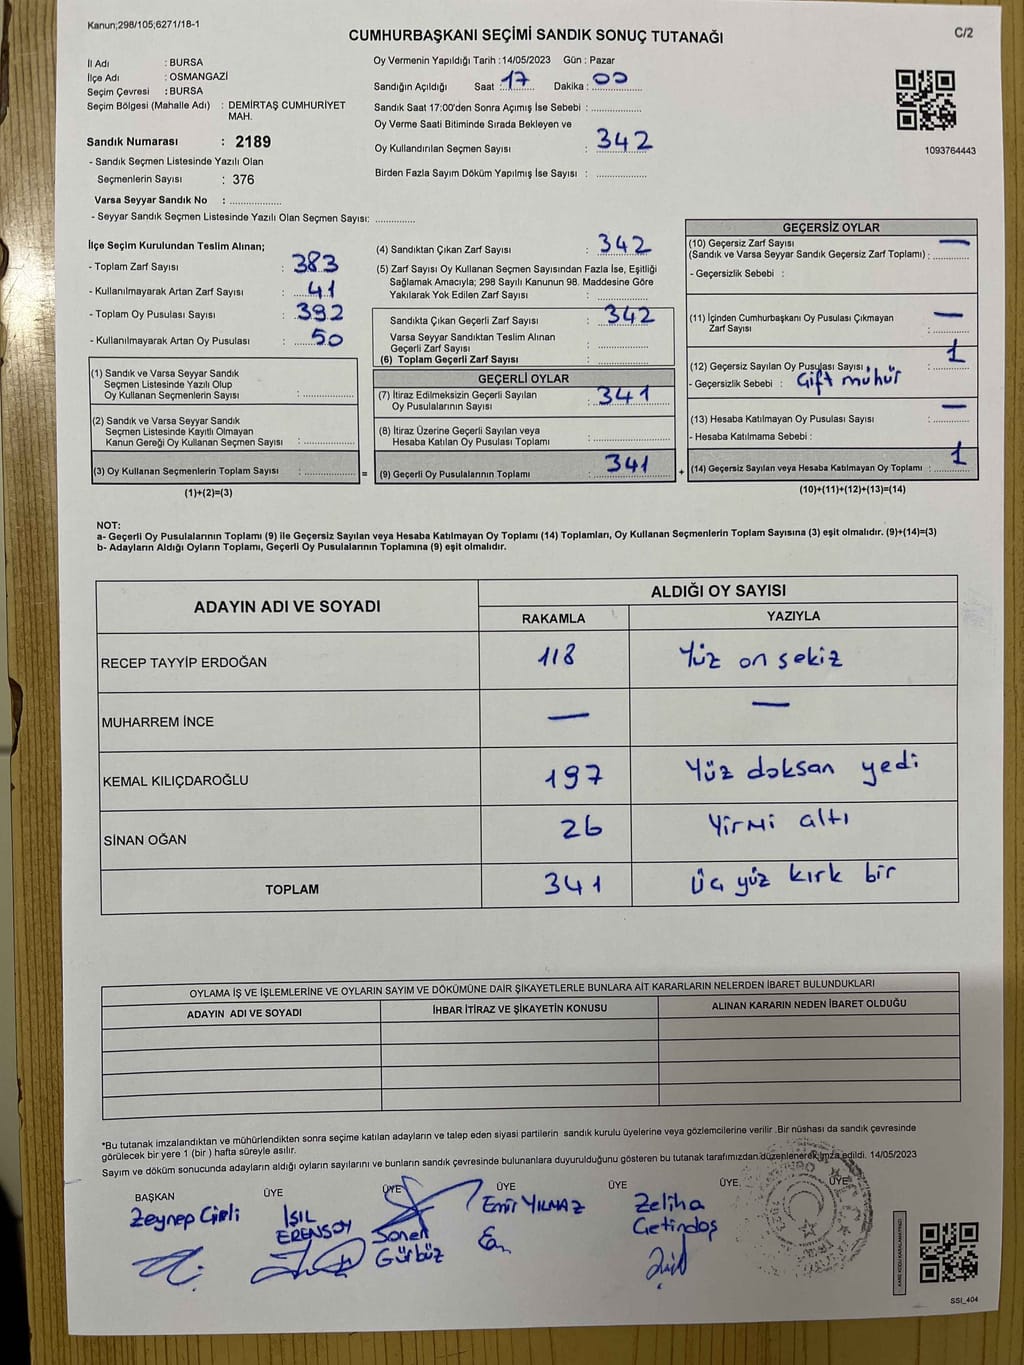 Kanun;298/105;6271/18-1
C/2
CUMHURBAŞKANI SEÇİMİ SANDIK SONUÇ TUTANAĞI
İl Adı : BURSA
İlçe Adı : OSMANGAZİ
Seçim Çevresi : BURSA
Seçim Bölgesi (Mahalle Adı) : DEMİRTAŞ CUMHURİYET
MAH.
Sandık Numarası : 2189
- Sandık Seçmen Listesinde Yazılı Olan
Seçmenlerin Sayısı : 376
Varsa Seyyar Sandık No : ................
- Seyyar Sandık Seçmen Listesinde Yazılı Olan Seçmen Sayısı: ............
Oy Vermenin Yapıldığı Tarih : 14/05/2023 Gün : Pazar
Sandığın Açıldığı Saat : 17 Dakika : 00
Sandık Saat 17:00'den Sonra Açımış İse Sebebi : ...............
Oy Verme Saati Bitiminde Sırada Bekleyen ve
Oy Kullandırılan Seçmen Sayısı : 342
Birden Fazla Sayım Döküm Yapılmış İse Sayısı : ...............
1093764443
İlçe Seçim Kurulundan Teslim Alınan;
- Toplam Zarf Sayısı : 383
- Kullanılmayarak Artan Zarf Sayısı : 41
- Toplam Oy Pusulası Sayısı : 392
- Kullanılmayarak Artan Oy Pusulası : 50
(1) Sandık ve Varsa Seyyar Sandık
Seçmen Listesinde Yazılı Olup
Oy Kullanan Seçmenlerin Sayısı : ...............
(2) Sandık ve Varsa Seyyar Sandık
Seçmen Listesinde Kayıtlı Olmayan
Kanun Gereği Oy Kullanan Seçmen Sayısı : ...............
(3) Oy Kullanan Seçmenlerin Toplam Sayısı : ...............
(1)+(2)=(3)
=
(4) Sandıktan Çıkan Zarf Sayısı : 342
(5) Zarf Sayısı Oy Kullanan Seçmen Sayısından Fazla İse, Eşitliği
Sağlamak Amacıyla; 298 Sayılı Kanunun 98. Maddesine Göre
Yakılarak Yok Edilen Zarf Sayısı : ...............
Sandıkta Çıkan Geçerli Zarf Sayısı : 342
Varsa Seyyar Sandıktan Teslim Alınan
Geçerli Zarf Sayısı : ...............
(6) Toplam Geçerli Zarf Sayısı : ...............
GEÇERLİ OYLAR
(7) İtiraz Edilmeksizin Geçerli Sayılan
Oy Pusulalarının Sayısı : 341
(8) İtiraz Üzerine Geçerli Sayılan veya
Hesaba Katılan Oy Pusulası Toplamı : ...............
(9) Geçerli Oy Pusulalarının Toplamı : 341
+
GEÇERSİZ OYLAR
(10) Geçersiz Zarf Sayısı —
(Sandık ve Varsa Seyyar Sandık Geçersiz Zarf Toplamı) : ..........
- Geçersizlik Sebebi :
(11) İçinden Cumhurbaşkanı Oy Pusulası Çıkmayan —
Zarf Sayısı : ..........
(12) Geçersiz Sayılan Oy Pusulası Sayısı : 1
- Geçersizlik Sebebi : Çift mühür
(13) Hesaba Katılmayan Oy Pusulası Sayısı : —
- Hesaba Katılmama Sebebi :
(14) Geçersiz Sayılan veya Hesaba Katılmayan Oy Toplamı : 1
(10)+(11)+(12)+(13)=(14)
NOT:
a- Geçerli Oy Pusulalarının Toplamı (9) ile Geçersiz Sayılan veya Hesaba Katılmayan Oy Toplamı (14) Toplamları, Oy Kullanan Seçmenlerin Toplam Sayısına (3) eşit olmalıdır. (9)+(14)=(3)
b- Adayların Aldığı Oyların Toplamı, Geçerli Oy Pusulalarının Toplamına (9) eşit olmalıdır.
ADAYIN ADI VE SOYADI
ALDIĞI OY SAYISI
RAKAMLA YAZIYLA
RECEP TAYYİP ERDOĞAN 118 Yüz on sekiz
MUHARREM İNCE — —
KEMAL KILIÇDAROĞLU 197 Yüz doksan yedi
SİNAN OĞAN 26 Yirmi altı
TOPLAM 341 Üç yüz kırk bir
OYLAMA İŞ VE İŞLEMLERİNE VE OYLARIN SAYIM VE DÖKÜMÜNE DAİR ŞİKAYETLERLE BUNLARA AİT KARARLARIN NELERDEN İBARET BULUNDUKLARI
ADAYIN ADI VE SOYADI İHBAR İTİRAZ VE ŞİKAYETİN KONUSU ALINAN KARARIN NEDEN İBARET OLDUĞU
*Bu tutanak imzalandıktan ve mühürlendikten sonra seçime katılan adayların ve talep eden siyasi partilerin sandık kurulu üyelerine veya gözlemcilerine verilir .Bir nüshası da sandık çevresinde
görülecek bir yere 1 (bir ) hafta süreyle asılır.
Sayım ve döküm sonucunda adayların aldığı oyların sayılarını ve bunların sandık çevresinde bulunanlara duyurulduğunu gösteren bu tutanak tarafımızdan düzenlenerek imza edildi. 14/05/2023
BAŞKAN ÜYE ÜYE ÜYE ÜYE ÜYE. ÜYE
Zeynep Çirli
IŞIL
ERENSOY
Soner
Gürbüz
Emir YILMAZ
Zeliha
Çetindaş
SSİ_404